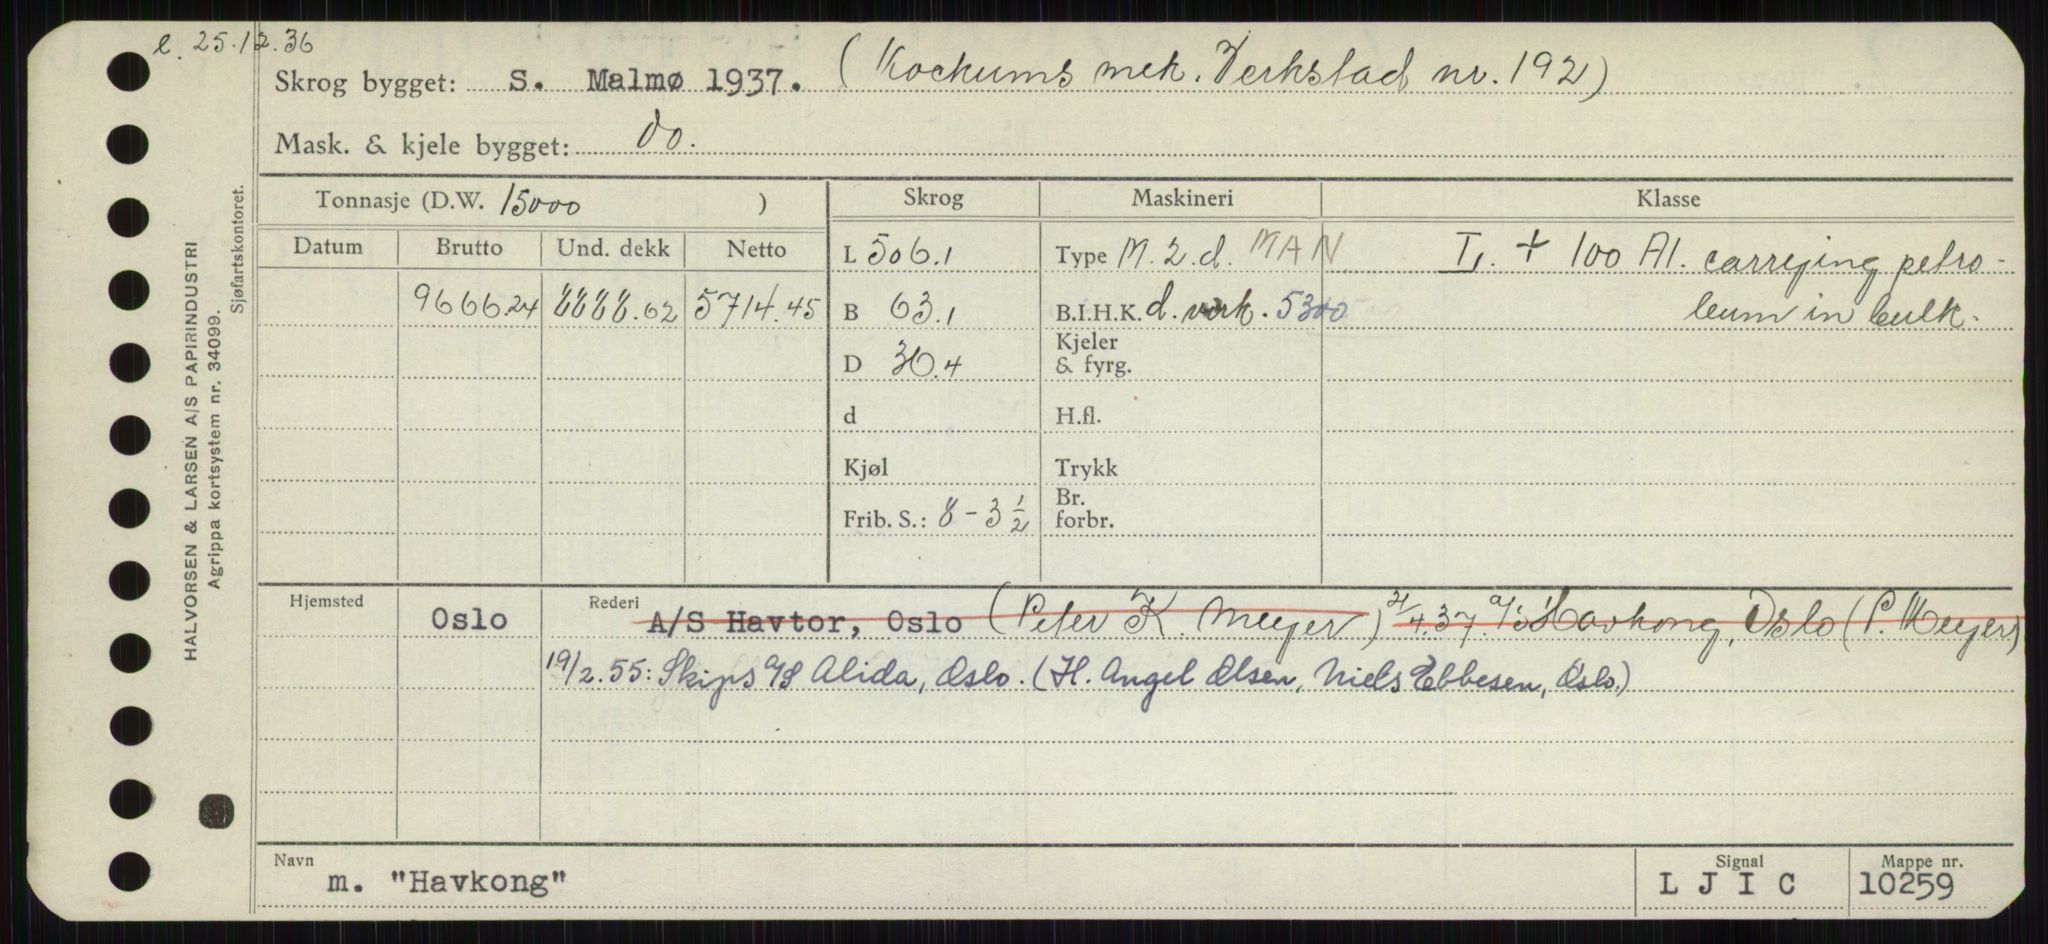 e. 25.12.36
Skrog bygget: S. Malmø 1937. (Kockums mek. Verkstad nr. 192)
Mask. & kjele bygget: do.
Tonnasje (D.W. 15000 )
Skrog
Maskineri
Klasse
Datum Brutto Und. dekk Netto
9666.24 8888.02 5714.45
L 506.1
B 63.1
D 36.4
d
Kjøl
Frib. S.: 8 - 3 1/2
Type M. 2. d. MAN
B.I.H.K. d. virk. 5300
Kjeler
& fyrg.
H.fl.
Trykk
Br.
forbr.
L. + 100 A1. carrying petro-
leum in bulk.
Hjemsted
Oslo
Rederi
A/S Havtor, Oslo (Peter K. Meyer) 21/4.37. A/S Havkong, Oslo (P. Meyer)
19/2.55: Skips A/S Alida, Oslo. (H. Angel Olsen, Niels Ebbesen, Oslo.)
Navn
m. "Havkong"
Signal
L J I C
Mappe nr.
10259
HALVORSEN & LARSEN A/S PAPIRINDUSTRI
Agrippa kortsystem nr. 34099.
Sjøfartskontoret.